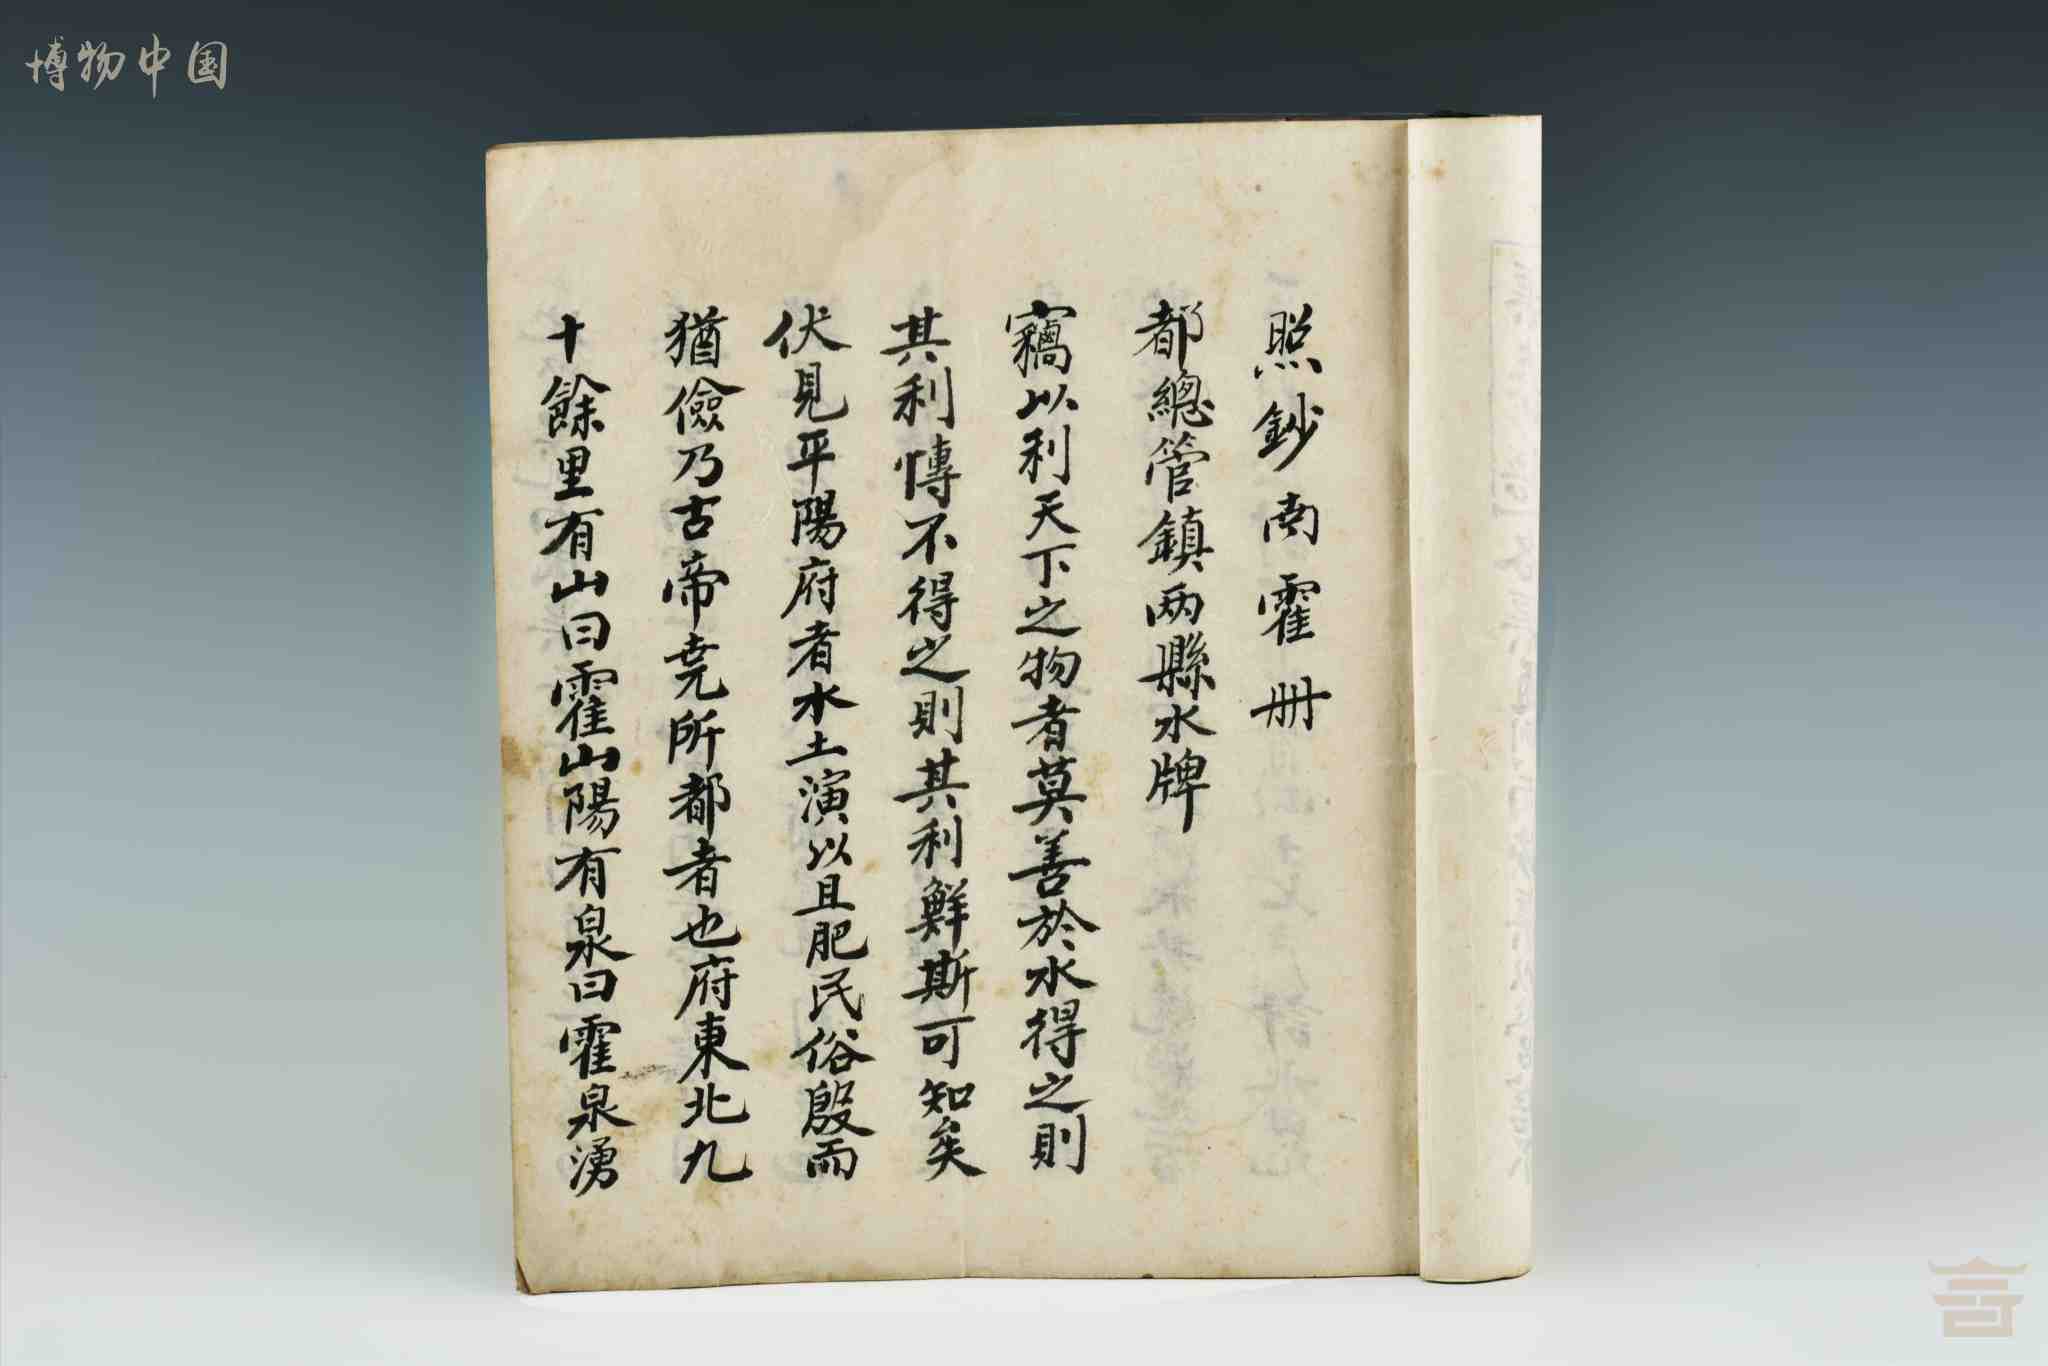 博物中国
照鈔南霍册
都總管鎮两縣水牌
竊以利天下之物者莫善於水得之則
其利博不得之則其利鮮斯可知矣
伏見平陽府者水土演以且肥民俗殷而
猶儉乃古帝尧所都者也府東北九
十餘里有山曰霍山陽有泉曰霍泉湧